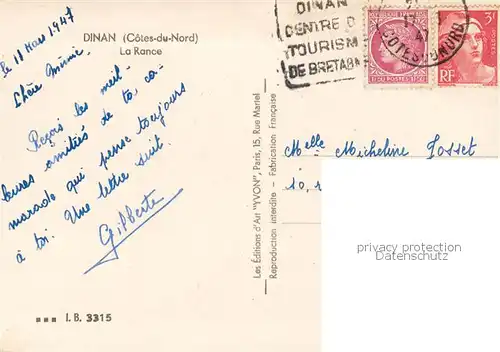 DINAN (Côtes-du-Nord)
La Rance
le 11 Mars 1947
Chère Mimie.
Reçois les meil-
leures amitiés de ta ca-
marade qui pense toujours
à toi. Une lettre suit.
Gilberte
■■■ I.B. 3315
Les Éditions d'Art "YVON", Paris, 15, Rue Martel
Reproduction interdite - Fabrication Française
DINAN
CENTRE D
TOURISM
DE BRETAGN
COTES-DU-NORD
POSTES
3F
RF
Melle Micheline Josset
10, r
privacy protection
watermark